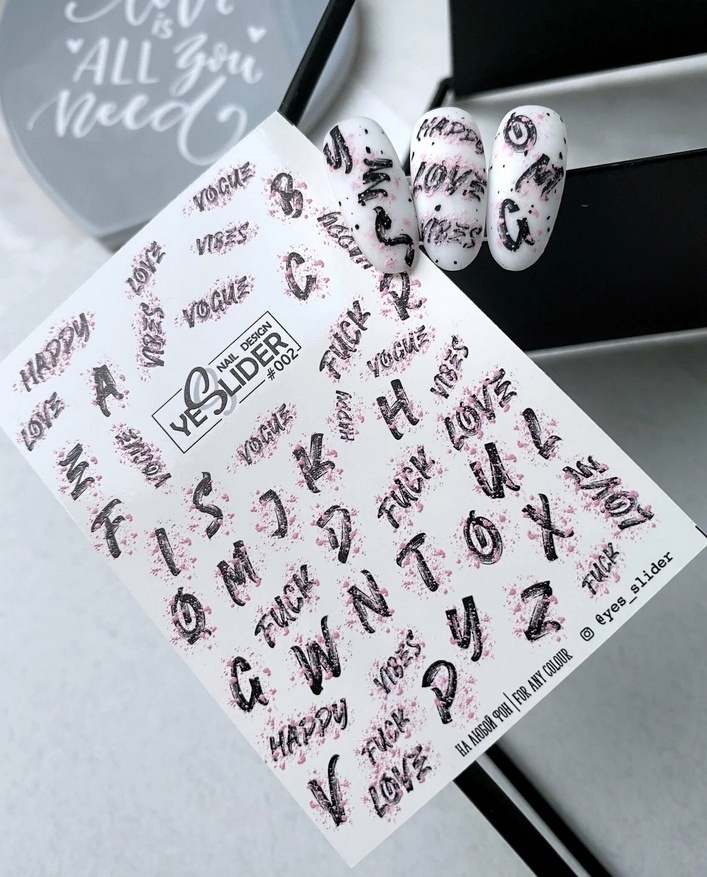 is
ALL you
need
M
S
HAPPY
LOVE
VIBES
O
M
G
VOGUE
B
VIBES
LOVE
C
VOGUE
VIBES
HAPPY
FUCK
VOGUE
VIBES
A
YESLIDER
NAIL DESIGN
#002
LOVE
HAPPY
H
LOVE
VOGUE
L
M
K
U
F
S
J
FUCK
I
D
X
LOVE
O
M
T
FUCK
Q
FUCK
N
Z
Y
W
VIBES
G
P
HAPPY
FUCK
V
LOVE
НА ЛЮБОЙ ФОН | FOR ANY COLOUR
@yes_slider